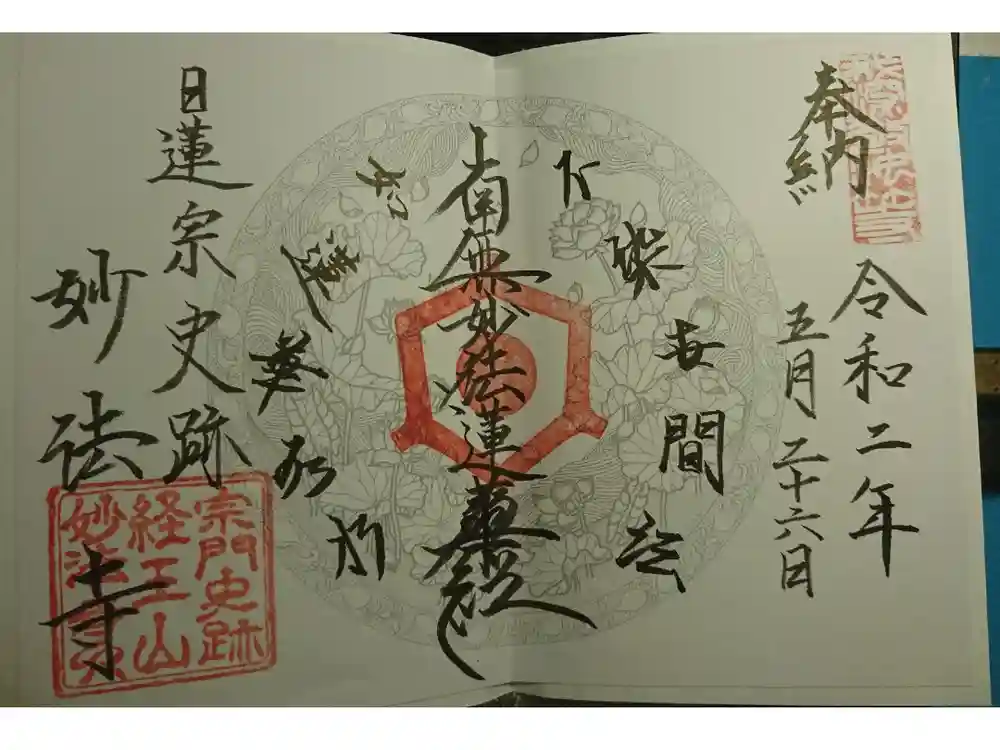 奉納
令和二年
五月二十六日
不染世間法
南無妙法蓮華経
如蓮華在水
日蓮宗史跡
妙法寺
宗門史跡
経王山
妙法